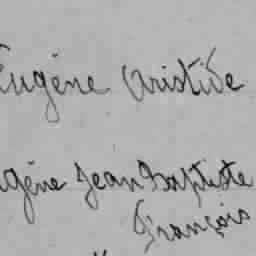 Eugène Aristide
Eugène Jean Baptiste
François